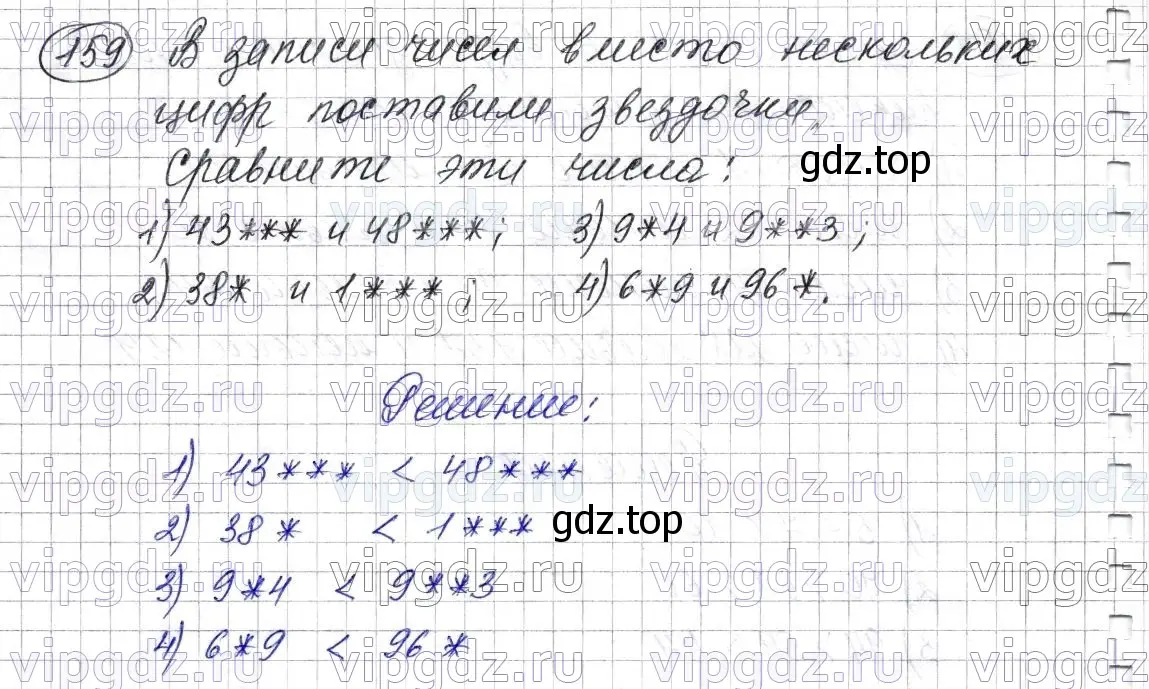 159 В записи чисел вместо нескольких
цифр поставили звездочки.
Сравните эти числа:
gdz.top
1) 43*** и 48***; 3) 9*4 и 9**3;
2) 38* и 1***; 4) 6*9 и 96*.
Решение:
1) 43*** < 48***
2) 38* < 1***
gdz.top
3) 9*4 < 9**3
4) 6*9 < 96*
vipgdz.ru